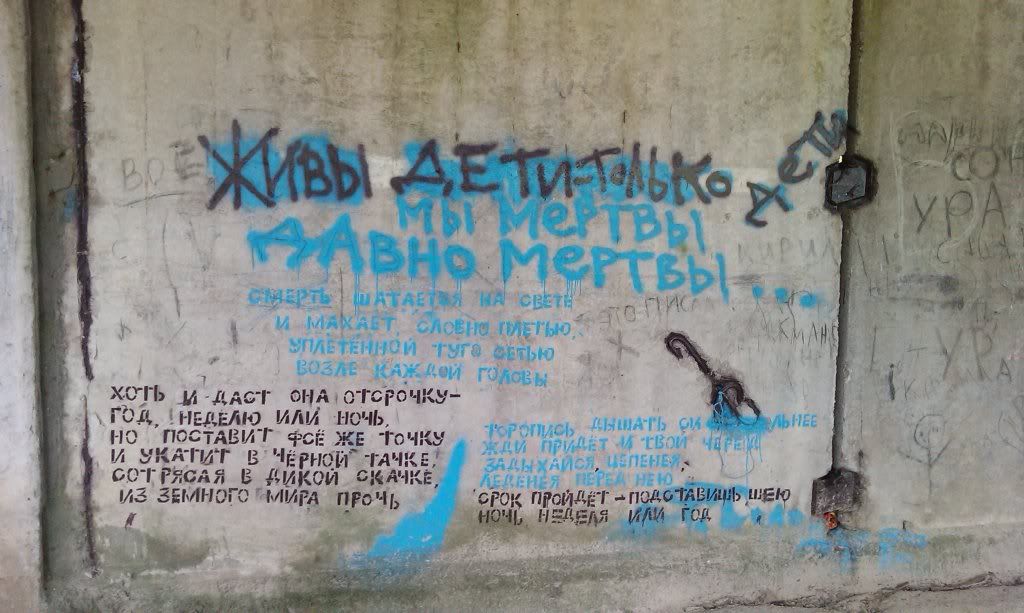 ЖИВЫ ДЕТИ-ТОЛЬКО ДЕТИ
МЫ МЕРТВЫ
ДАВНО МЕРТВЫ...
СМЕРТЬ ШАТАЕТСЯ НА СВЕТЕ
И МАХАЕТ, СЛОВНО ПЛЕТЬЮ,
УПЛЕТЁННОЙ ТУГО СЕТЬЮ
ВОЗЛЕ КАЖДОЙ ГОЛОВЫ
ХОТЬ И ДАСТ ОНА ОТСРОЧКУ-
ГОД, НЕДЕЛЮ ИЛИ НОЧЬ,
НО ПОСТАВИТ ФСЁ ЖЕ ТОЧКУ
И УКАТИТ В ЧЁРНОЙ ТАЧКЕ,
СОТРЯСАЯ В ДИКОЙ СКАЧКЕ,
ИЗ ЗЕМНОГО МИРА ПРОЧЬ
ТОРОПИСЬ ДЫШАТЬ ЛЬНЕЕ
ЖДИ ПРИДЁТ И ТВОЙ ЧЕРЁД
ЗАДЫХАЙСЯ, ЦЕПЕНЕЯ,
ЛЕДЕНЕЯ ПЕРЕД НЕЮ
СРОК ПРОЙДЁТ-ПОДСТАВИШЬ ШЕЮ
НОЧЬ НЕДЕЛЯ ИЛИ ГОД
УРА
УРА